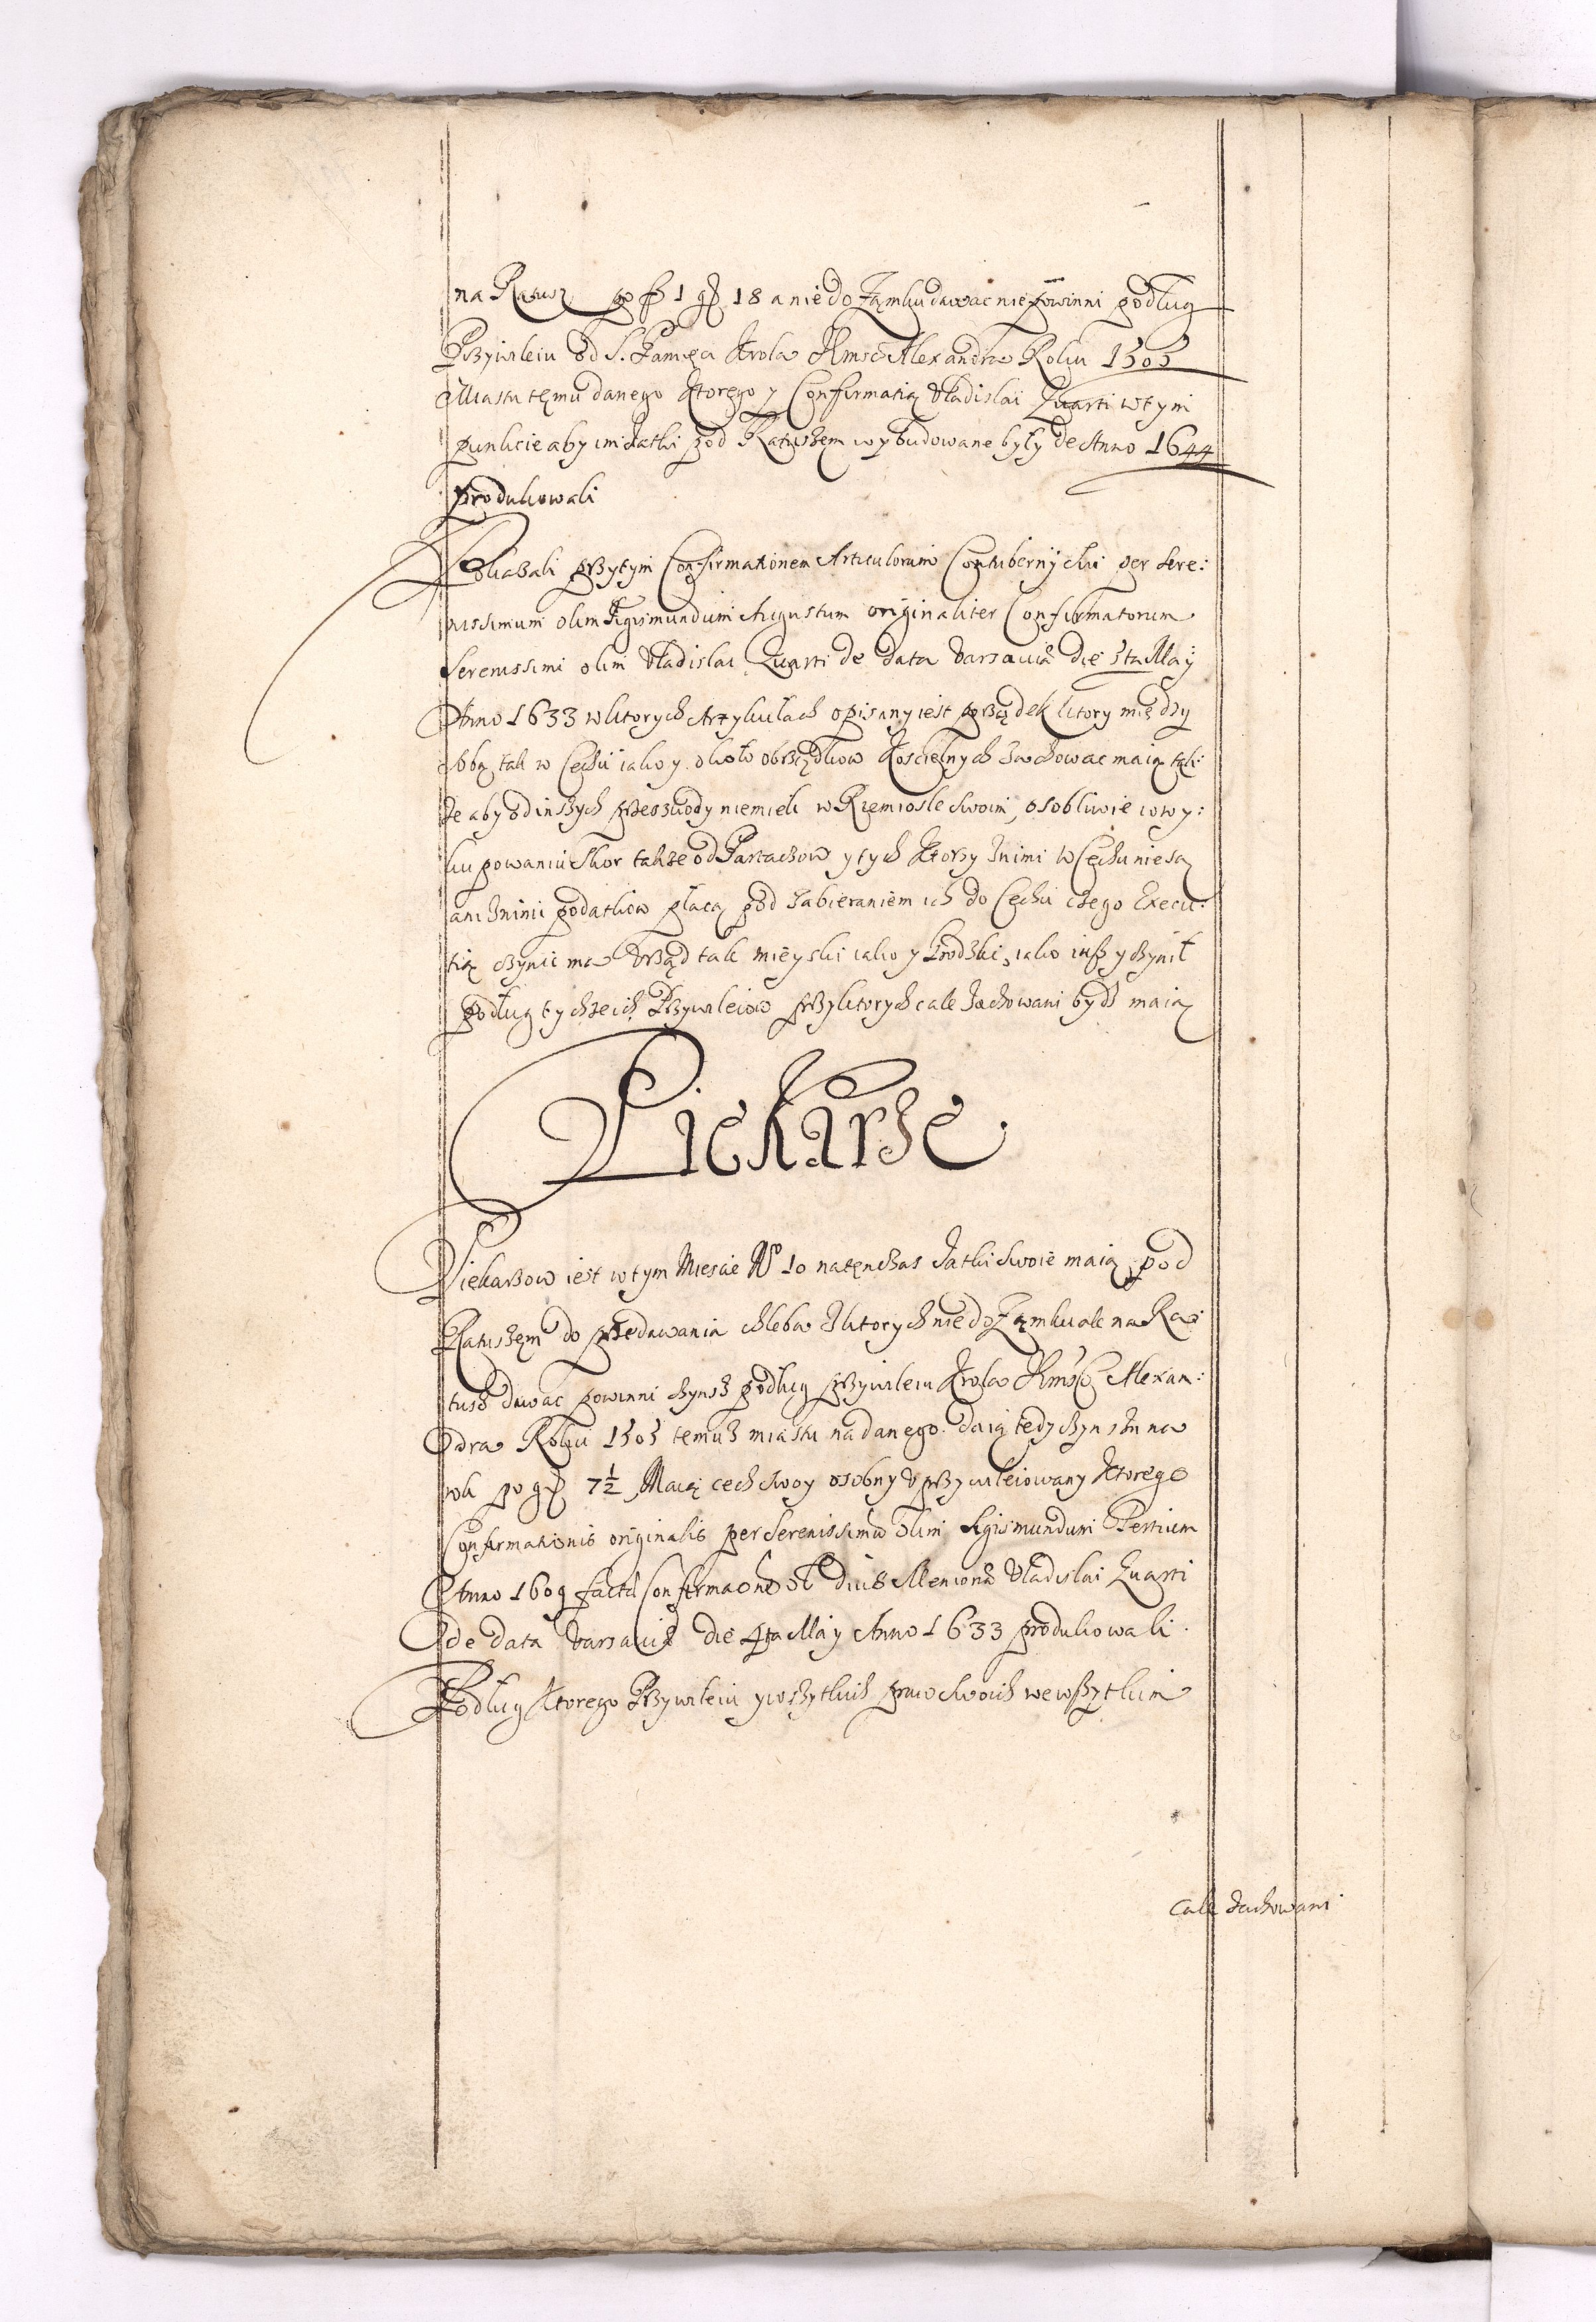 na Ratusz po fl 1 gr 18 a nie do Zamku dawac nie powinni podług
Przywileiu od S. Pamięci Krola JKmsci Alexandra Roku 1505
Miastu temu danego Ktorego y Confirmatią Vladislai Quarti w tym
punkcie aby im Jatki pod Ratuszem wybudowane były de Anno 1644
produkowali
Pokazali przytym Confirmationem Articulorum Contubernij sui per Sere:
nissimum olim Sigismundum Augustum originaliter Confirmatorum
Serenissimi olim Vladislai Quarti de data Varsaviæ die 5ta May
Anno 1633 w ktorych Artykułach opisany iest porządek ktory między
sobą tak w Cechu iako y około obrządkow Koscielnych zachowac maią tak:
ze aby od inszych przeszkody niemieli w Rzemiosle swoim, osobliwie w wy:
kupowaniu Skor takze od Partaczow y tych Ktorzy z nimi w Cechu nie są
ani z nimi podatkow płacą pod zabieraniem ich do Cechu czego Execu:
tią czynic ma Vrząd tak mieyski iako y Grodzki, iako iusz y czynił
podług tychze ich Przywileiow przy ktorych cale zachowani bydz maią
Piekarze
Piekarzow iest w tym Miescie No 10 natenczas Jatki swoie maią pod
Ratuszem do przedawania chleba z ktorych nie do Zamku ale na Ra:
tusz dawac powinni czynsz podług przywileiu Krola JKmsci Alexan:
dra Roku 1505 temusz miastu nadanego. daią tedy czynszu na
rok po gr 7½ Maią cech swoy osobny uprzywileiowany Ktorego
Confirmationis originalis per Serenissimum olim Sigismundum Tertium
Anno 1609 factæ Confirmaonem Diuæ Memoriæ Vladislai Quarti
de data Varsaviæ die 4ta May Anno 1633 produkowali.
Podług Ktorego Przywileiu y wszytkich praw swoich we wszytkim
cale zachowani